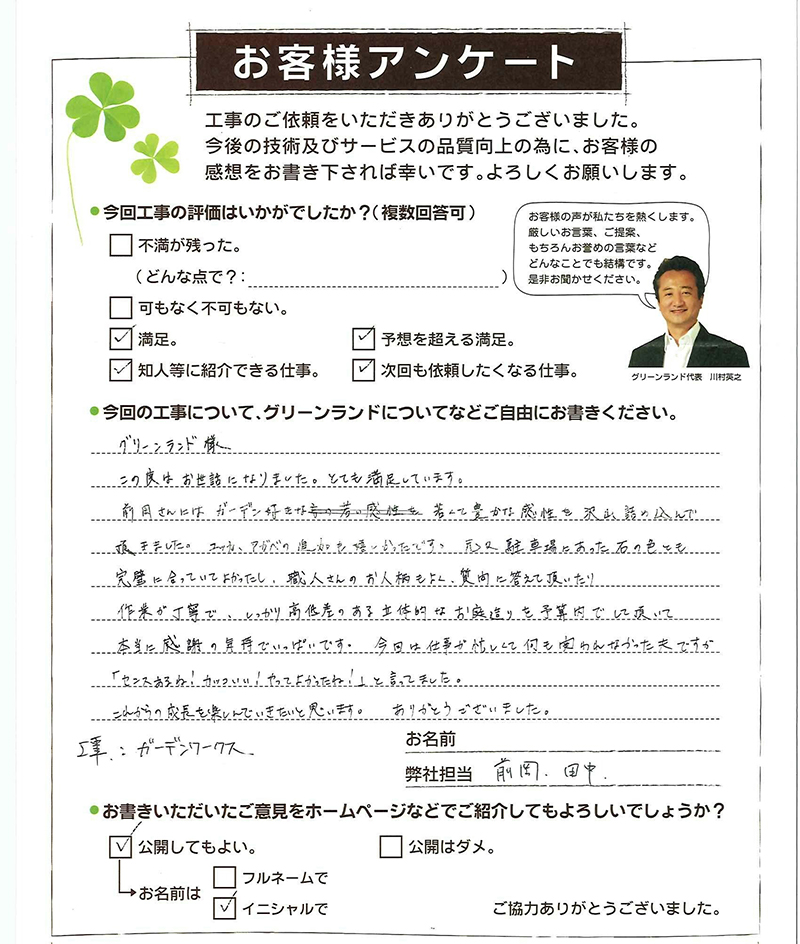 お客様アンケート
工事のご依頼をいただきありがとうございました。
今後の技術及びサービスの品質向上の為に、お客様の
感想をお書き下されば幸いです。よろしくお願いします。
●今回工事の評価はいかがでしたか？（複数回答可）
お客様の声が私たちを熱くします。
厳しいお言葉、ご提案、
もちろんお誉めの言葉など
どんなことでも結構です。
是非お聞かせください。
不満が残った。
（どんな点で？： ）
可もなく不可もない。
満足。 予想を超える満足。
知人等に紹介できる仕事。 次回も依頼したくなる仕事。
グリーンランド代表 川村英之
●今回の工事について、グリーンランドについてなどご自由にお書きください。
グリーンランド様
この度はお世話になりました。とても満足しています。
前岡さんにはガーデン好きな 若くて豊かな感性を沢山詰め込んで
頂きました。 アガベの追加も嬉しかったです。元々駐車場にあった石の色とも
完璧に合っていてよかったし、職人さんのお人柄もよく、質問に答えて頂いたり
作業が丁寧で、しっかり高低差のある立体的なお庭造りを予算内でして頂いて
本当に感謝の気持でいっぱいです。 今回は仕事が忙しくて何も関わんなかった夫ですが
「センスあるね！カッコいい！やってよかったね！」と言ってました。
これからの成長も楽しんでいきたいと思います。 ありがとうございました。
工事：ガーデンワークス
お名前
弊社担当 前岡、田中
●お書きいただいたご意見をホームページなどでご紹介してもよろしいでしょうか？
公開してもよい。 公開はダメ。
お名前は フルネームで
イニシャルで
ご協力ありがとうございました。